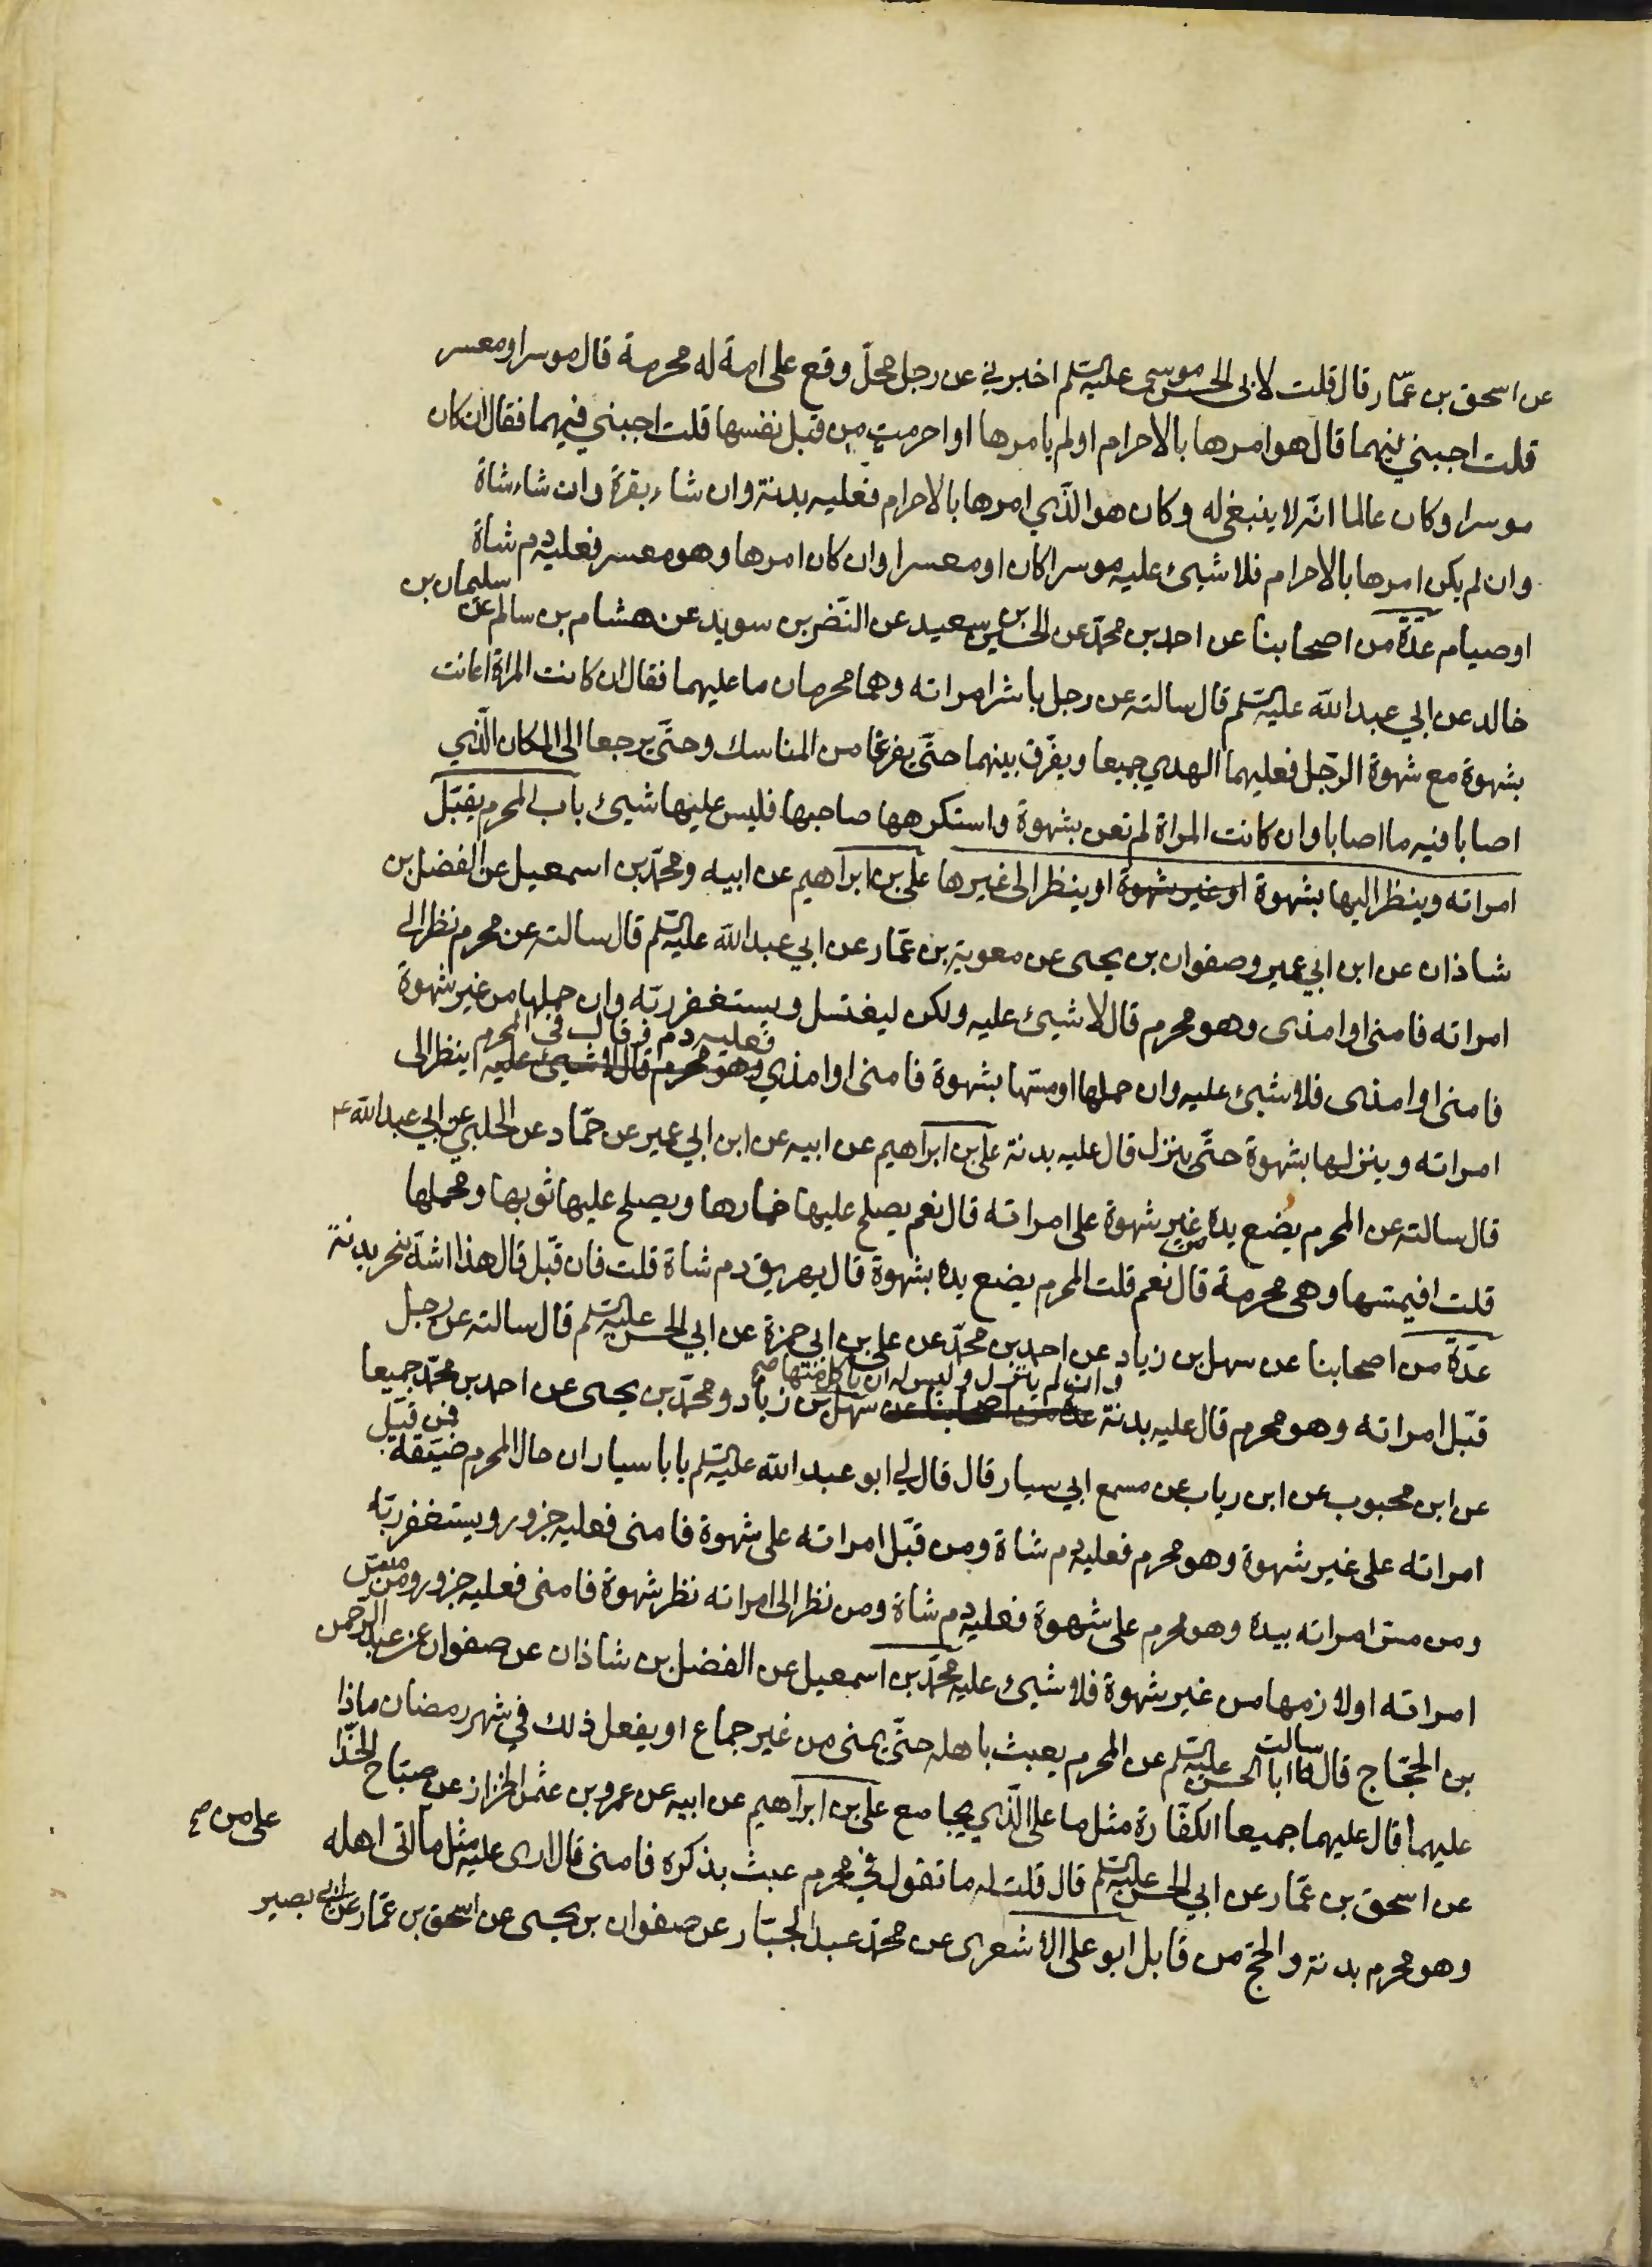 عن اسحق بن عمّار قال قلت لابي الحسن موسى عليه السّلم اخبرني عن رجل محلّ وقع على امة له محرمة قال موسرا ومعسر
قلت اجبني فيهما قال هو امرها بالاحرام اولم يامرها او احرمت من قبل نفسها قلت اجبني فيهما فقال ان كان
موسرا وكان عالما انّه لا ينبغي له وكان هو الذّي امرها بالاحرام فعليه بدنة وان شاء بقرة وان شاء شاة
وان لم يكن امرها بالاحرام فلا شيئ عليه موسرا كان او معسرا وان كان امرها وهو معسر فعليه دم شاة
او صيام عدّة من اصحابنا عن احمد بن محمّد عن الحسين بن سعيد عن النّضر بن سويد عن هشام بن سالم عن سليمان بن
خالد عن ابي عبد الله عليه السّلم قال سالته عن رجل باشر امراته وهما محرمان ما عليهما فقال ان كانت المراة اعانت
بشهوة مع شهوة الرّجل فعليهما الهدي جميعا ويفرّق بينهما حتّى يفرغا من المناسك وحتّى يرجعا الى المكان الّذي
اصابا فيه ما اصابا وان كانت المراة لم تعن بشهوة واستكرهها صاحبها فليس عليها شيئ باب المحرم يقبّل
امراته وينظر اليها بشهوة او غير شهوة او ينظر الى غيرها علي بن ابراهيم عن ابيه ومحمّد بن اسمعيل عن الفضل بن
شاذان عن ابن ابي عمير وصفوان بن يحيى عن معوية بن عمّار عن ابي عبد الله عليه السّلم قال سالته عن محرم نظر الى
امراته فامنى او امذى وهو محرم قال لا شيئ عليه ولكن ليغتسل ويستغفر ربّه وان حملها من غير شهوة
فامنى او امذى فلا شيئ عليه وان حملها او مسّها بشهوة فامنى او امذي وهو محرم قال لا شيئ عليه فعليه دم وقال في المحرم ينظر الى
امراته وينزلها بشهوة حتّى ينزل قال عليه بدنة علي بن ابراهيم عن ابيه عن ابن ابي عمير عن حمّاد عن الحلبي عن ابي عبد الله ع
قال سالته عن المحرم يضع يده من غير شهوة على امراته قال نعم يصلح عليها خمارها ويصلح عليها ثوبها ومحملها
قلت افيمسّها وهي محرمة قال نعم قلت المحرم يضع يده بشهوة قال يهريق دم شاة قلت فان قبّل قال هذا اشدّ ينحر بدنة
عدّة من اصحابنا عن سهل بن زياد عن احمد بن محمّد عن علي بن ابي حمزة عن ابي الحسن عليه السّلم قال سالته عن رجل
قبّل امراته وهو محرم قال عليه بدنة وان لم ينزل وليس له ان ياكل منها صح عدّة من اصحابنا عن سهل بن زياد ومحمّد بن يحيى عن احمد بن محمّد جميعا
عن ابن محبوب عن ابن رياب عن مسمع ابي سيار قال قال لي ابو عبد الله عليه السّلم يابا سيار ان حال المحرم ضيّقة فمن قبّل
امراته على غير شهوة وهو محرم فعليه دم شاة ومن قبّل امراته على شهوة فامنى فعليه جزور ويستغفر ربّه
ومن مسّ امراته بيده وهو محرم على شهوة فعليه دم شاة ومن نظر الى امراته نظر شهوة فامنى فعليه جزور ومن مسّ
امراته او لازمها من غير شهوة فلا شيئ عليه محمّد بن اسمعيل عن الفضل بن شاذان عن صفوان عن عبد الرّحمن
بن الحجّاج قال سالت ابا الحسن عليه السّلم عن المحرم يعبث باهله حتّى يمنى من غير جماع او يفعل ذلك في شهر رمضان ماذا
عليهما قال عليهما جميعا الكفّارة مثل ما على الّذي يجامع علي بن ابراهيم عن ابيه عن عمرو بن عثمن الخزاز عن صبّاح الحذّا
عن اسحق بن عمّار عن ابي الحسن عليه السّلم قال قلت له ما تقول في محرم عبث بذكره فامنى قال ارى عليه مثل ما اتى اهله
على من صح
وهو محرم بدنة والحجّ من قابل ابو علي الاشعري عن محمّد عبد الجبّار عن صفوان بن يحيى عن اسحق بن عمّار عن ابي بصير